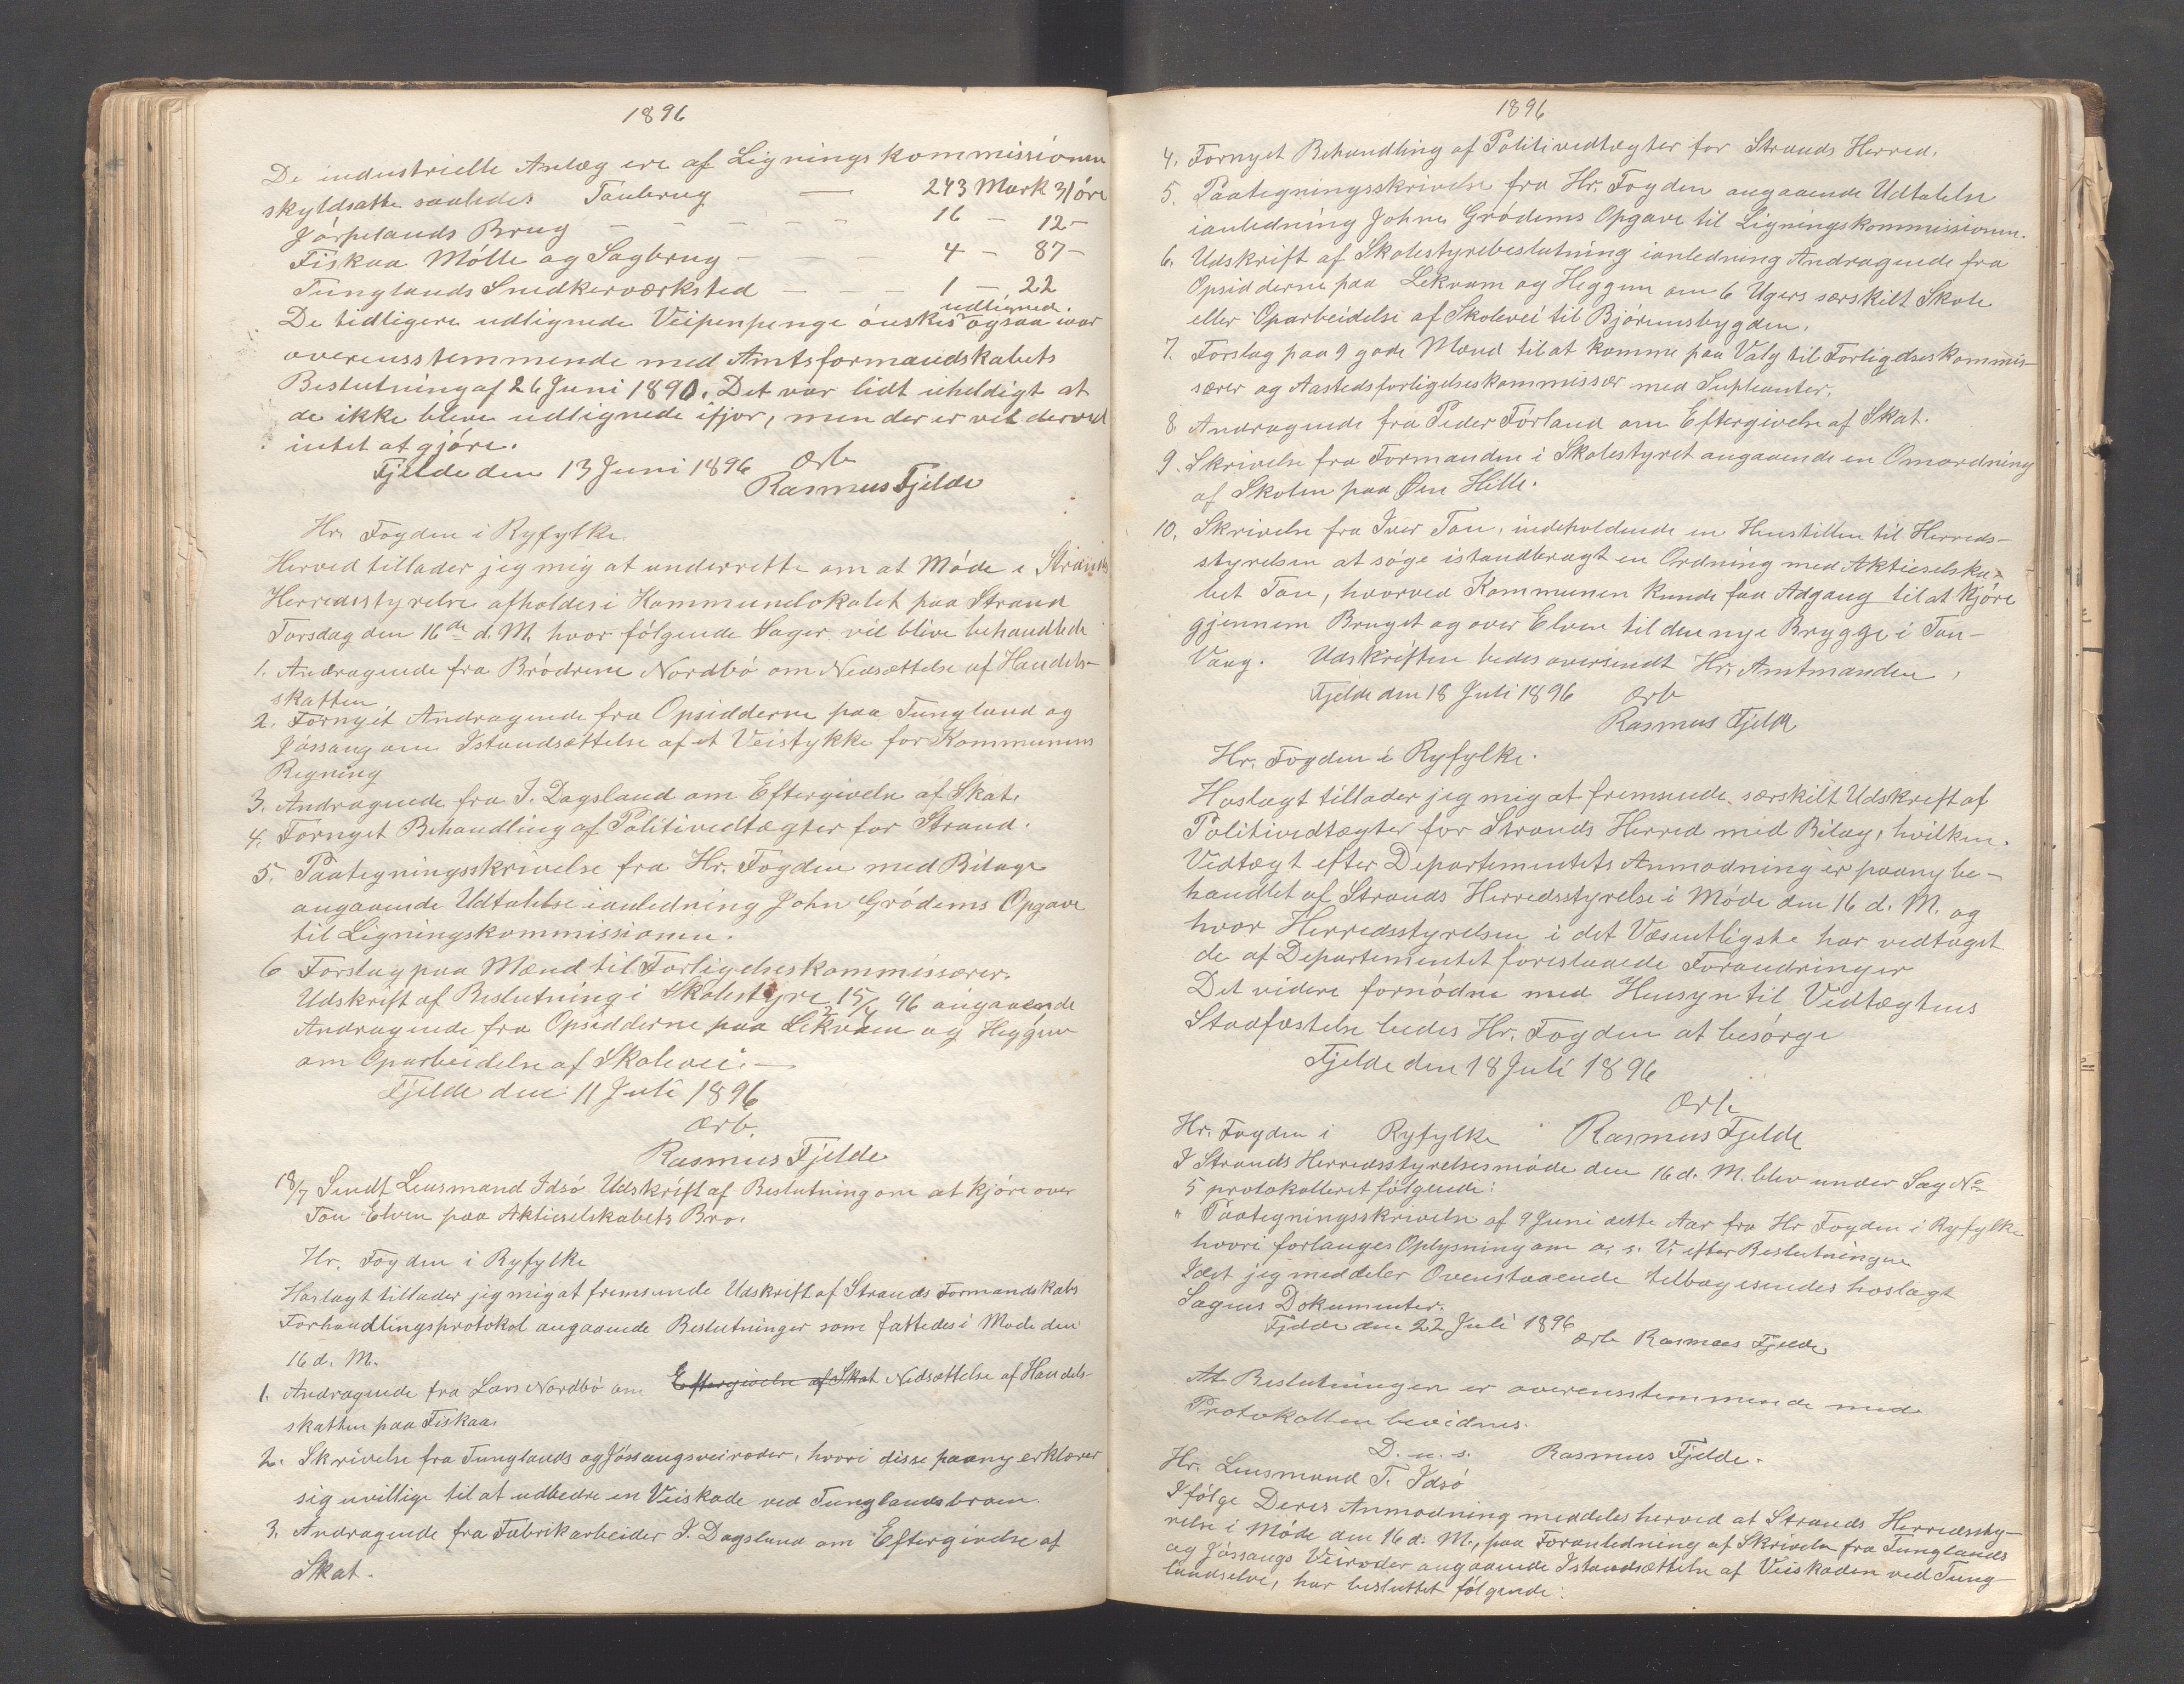 1896
De industrielle Anlæg ere af Ligningskommissionen
skyldsatte saaledes Taubrug — 243 Mark 31 øre
Jørpelands Brug – – – – – 16 – 12 –
Fiskaa Mølle og Sagbrug – – – 4 – 87 –
Tunglands Snedkerværksted – – – 1 – 22
De tidligere udlignede Veipenpenge ønskes udlignede ogsaa iaar
overensstemmende med Amtsformandskabets
Beslutning af 26 Juni 1890. Det var lidt uheldigt at
de ikke bleve udlignede ifjor, men der er vel derved
intet at gjøre.
Fjelde den 13 Juni 1896 Ærb
Rasmus Fjelde
Hr. Fogden i Ryfylke.
Herved tillader jeg mig at underrette om at Møde i Strands
Herredsstyrelse afholdes i Kommunelokalet paa Strand
Torsdag den 16de d. M. hvor følgende Sager vil blive behandlede
1. Andragende fra Brødrene Nordbø om Nedsættelse af Handels-
skatten.
2. Fornyet Andragende fra Opsidderne paa Tungland og
Jøssang om Istandsættelse af et Veistykke for Kommunens
Regning
3. Andragende fra J. Dagsland om Eftergivelse af Skat.
4. Fornyet Behandling af Politivedtægter for Strand.
5. Paategningsskrivelse fra Hr. Fogden med Bilage
angaaende Udtalelse ianledning John Grødems Opgave
til Ligningskommissionen.
6 Forslag paa Mænd til Forligelseskommissærer.
Udskrift af Beslutning i Skolestyre 15/4 96 angaaende
Andragende fra Opsidderne paa Lekvam og Heggen
om Oparbeidelse af Skolevei. —
Fjelde den 11 Juli 1896
Ærb.
Rasmus Fjelde
18/7 Sendt Lensmand Idsø Udskrift af Beslutning om at kjøre over
Tau Elven paa Aktieselskabets Bro.
Hr. Fogden i Ryfylke
Hoslagt tillader jeg mig at fremsende Udskrift af Strands Formandskabs
Forhandlingsprotokol angaaende Beslutninger som fattedes i Møde den
16 d. M.
1. Andragende fra Lars Nordbø om Eftergivelse af Skat Nedsættelse af Handels-
skatten paa Fiskaa.
2. Skrivelse fra Tunglands og Jøssangsveiroder, hvori disse paany erklærer
sig uvillige til at udbedre en Veiskade ved Tunglandsbroen.
3. Andragende fra Fabrikarbeider J. Dagsland om Eftergivelse af
Skat.
1896
4. Fornyet Behandling af Politivedtægter for Strands Herred.
5. Paategningsskrivelse fra Hr. Fogden angaaende Udtalelse
ianledning Johne Grødems Opgave til Ligningskommissionen.
6. Udskrift af Skolestyrebeslutning ianledning Andragende fra
Opsidderne paa Lekvam og Heggen om 6 Ugers særskilt Skole
eller Oparbeidelse af Skolevei til Bjørheimsbygden.
7. Forslag paa 9 gode Mænd til at komme paa Valg til Forligelseskommis-
særer og Aastedsforligelseskommissær med Supleanter.
8. Andragende fra Peder Førland om Eftergivelse af Skat.
9. Skrivelse fra Formanden i Skolestyret angaaende en Omordning
af Skolen paa Øen Helle.
10. Skrivelse fra Iver Tau, indeholdende en Henstillen til Herreds-
styrelsen at søge istandbragt en Ordning med Aktieselska-
bet Tau, hvorved Kommunen kunde faa Adgang til at kjøre
gjennem Bruget og over Elven til den nye Brygge i Tau-
Vaag. Udskriften bedes oversendt Hr. Amtmanden.
Fjelde den 18 Juli 1896 Ærb
Rasmus Fjelde
Hr. Fogden i Ryfylke.
Hoslagt tillader jeg mig at fremsende særskilt Udskrift af
Politivedtægter for Strands Herred med Bilag, hvilken
Vedtægt efter Departementets Anmodning er paany be-
handlet af Strands Herredsstyrelse i Møde den 16 d. M. og
hvor Herredsstyrelsen i det Væsentligste har vedtaget
de af Departementet foreslaaede Forandringer
Det videre fornødne med Hensyn til Vedtægtens
Stadfæstelse bedes Hr. Fogden at besørge
Fjelde den 18 Juli 1896
Ærb
Hr. Fogden i Ryfylke Rasmus Fjelde
I Strands Herredsstyrelsesmøde den 16 d. M. blev under Sag No
5 protokolleret følgende:
" Paategningsskrivelse af 9 Juni dette Aar fra Hr Fogden i Ryfylke
hvori forlanges Oplysning om o. s. V. efter Beslutningen
Idet jeg meddeler Ovenstaaende tilbagesendes hoslagt
Sagens Dokumenter.
Fjelde den 22 Juli 1896
Ærb Rasmus Fjelde
At Beslutningen er overensstemmende med
Protokollen bevidnes.
D. u. s. Rasmus Fjelde.
Hr. Lensmand T. Idsø
Ifølge Deres Anmodning meddeles herved at Strands Herredssty-
relse i Møde den 16 d. M., paa Foranledning af Skrivelse fra Tunglands
og Jøssangs Veiroder angaaende Istandsættelse af Veiskaden ved Tung-
landselve, har besluttet følgende: